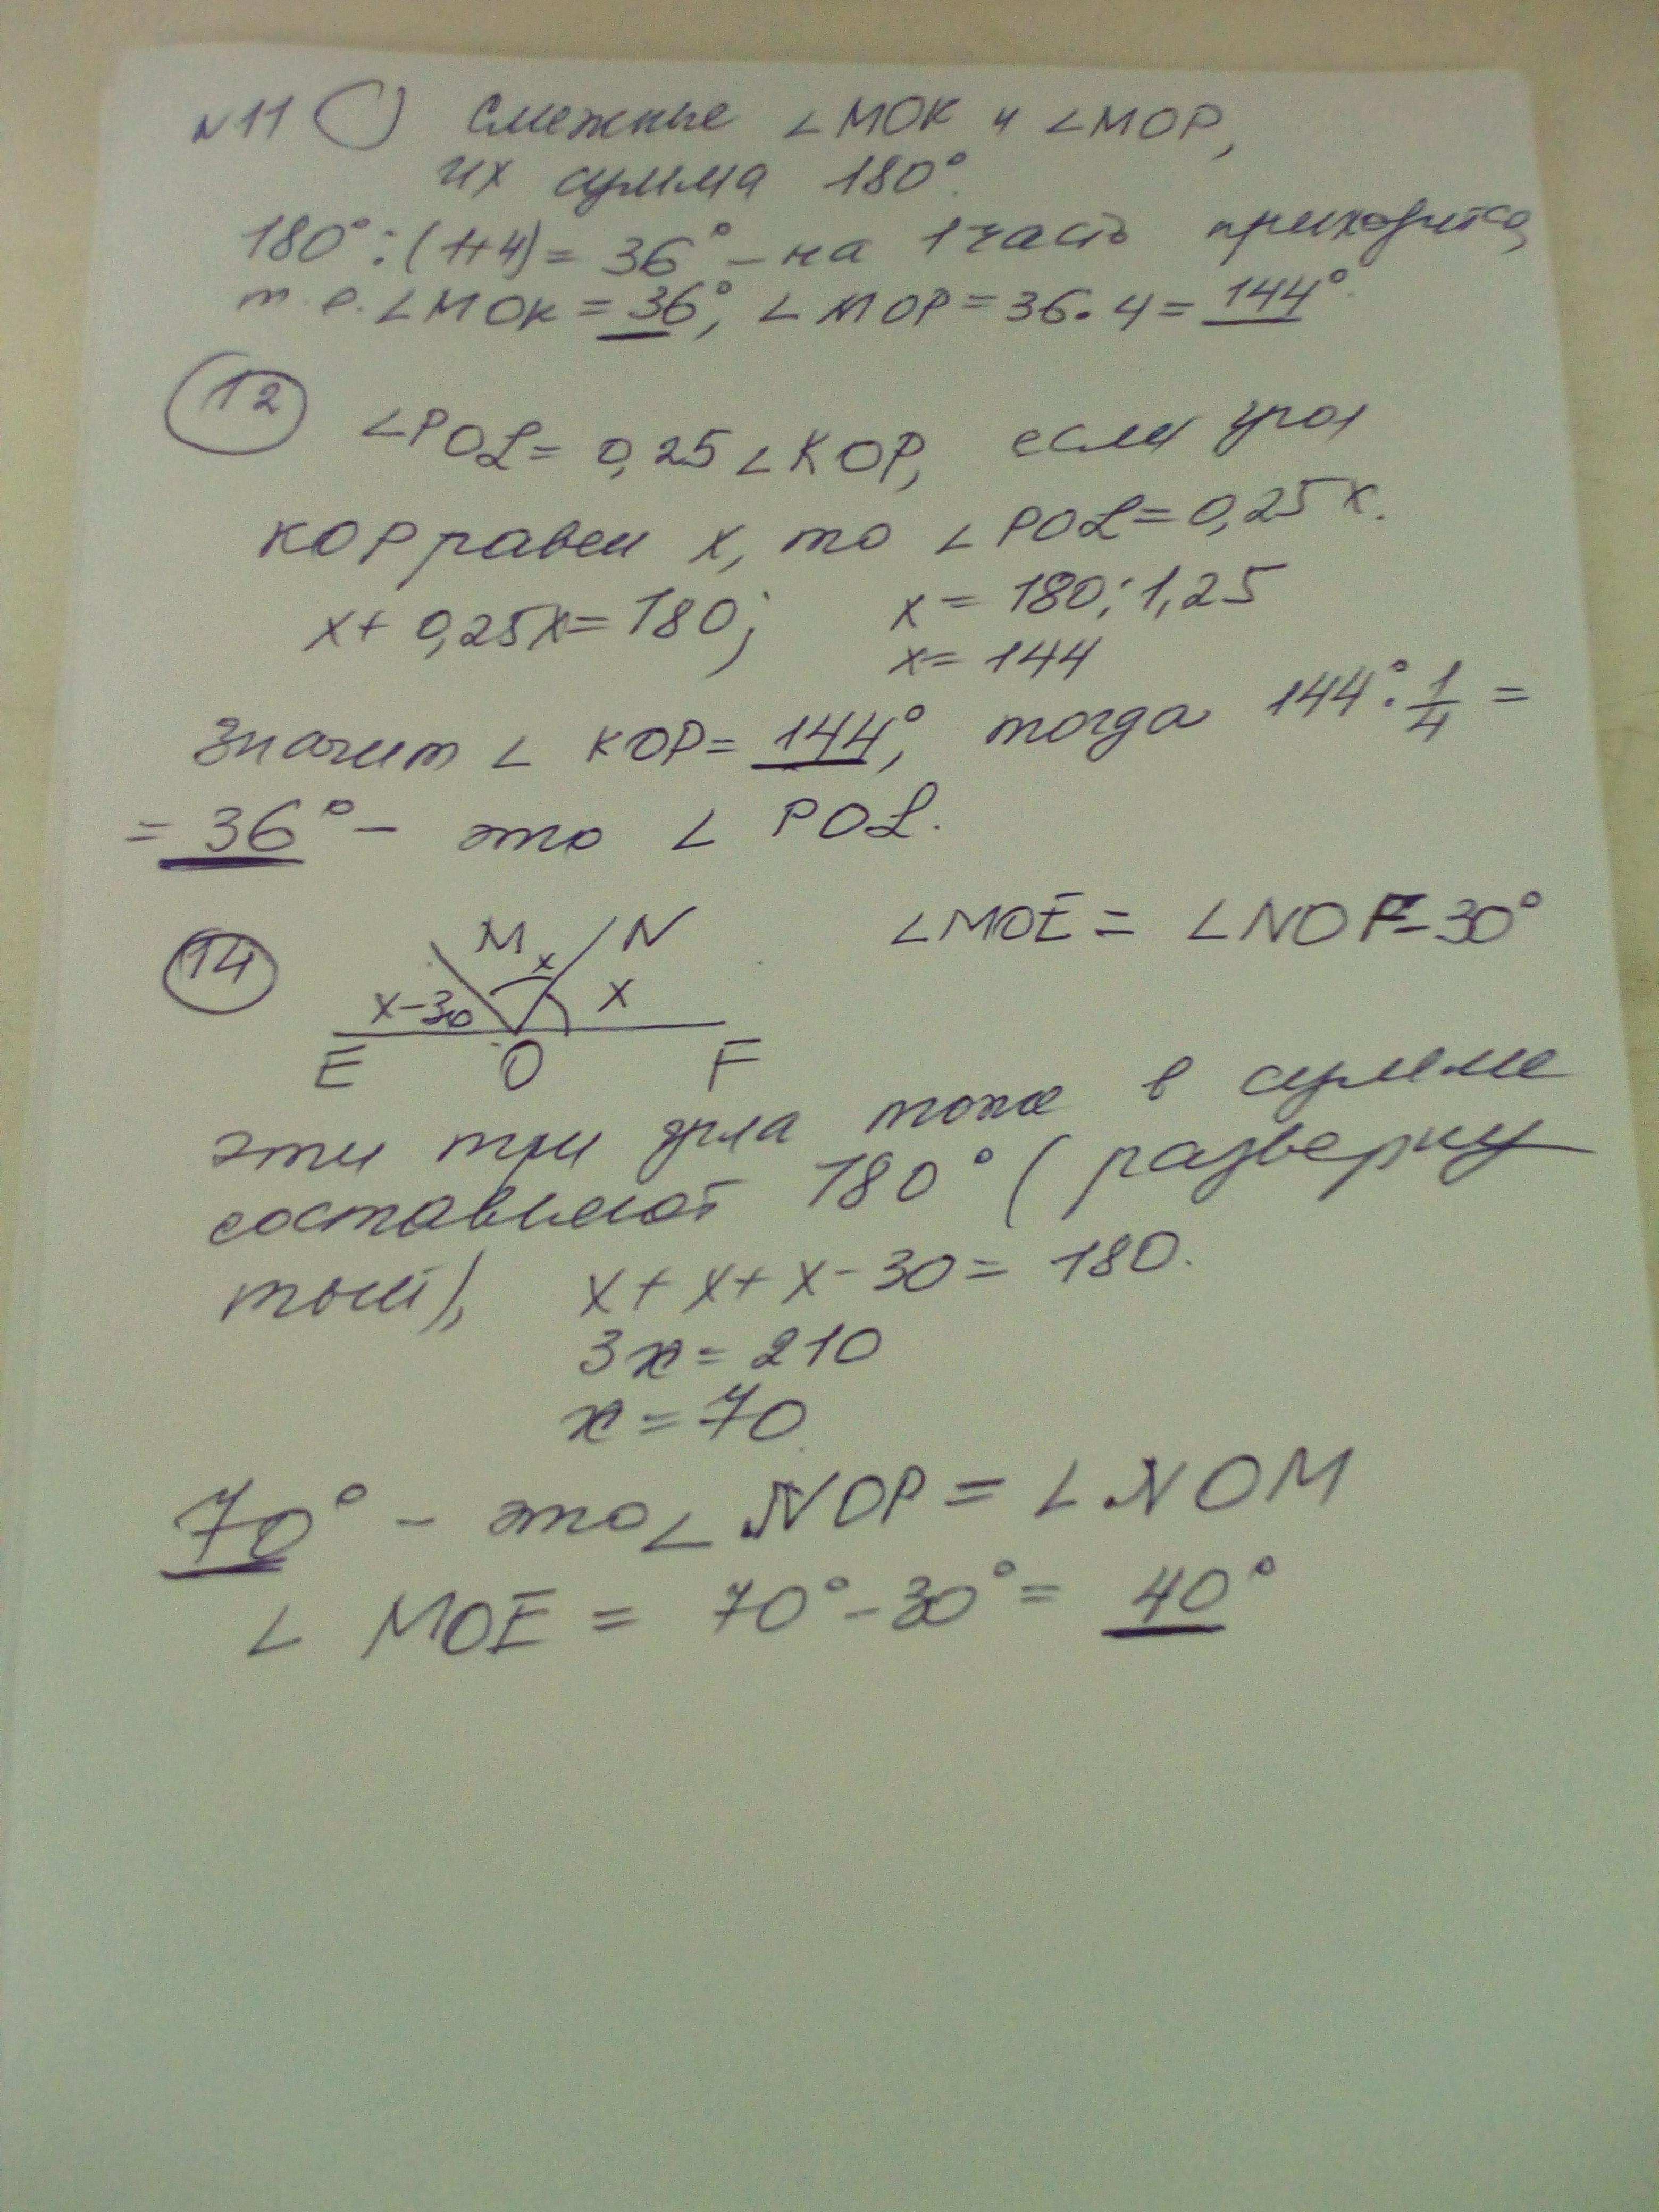 №11 Смежные ∠MOK и ∠MOP,
их сумма 180°.
180° : (1+4) = 36° – на 1 часть приходится,
т. е. ∠MOK = 36°, ∠MOP = 36 · 4 = 144°.
12
∠POL = 0,25 ∠KOP, если угол
KOP равен x, то ∠POL = 0,25x.
x + 0,25x = 180; x = 180 : 1,25
x = 144
Значит ∠ KOP = 144°, тогда 144° · 1/4 =
= 36° – это ∠ POL.
14 M x N ∠MOE = ∠NOF – 30°
x – 30 x
E O F
эти три угла тоже в сумме
составляют 180° (разверну
тый), x + x + x – 30 = 180.
3x = 210
x = 70
70° – это ∠ NOP = ∠ NOM
∠ MOE = 70° – 30° = 40°